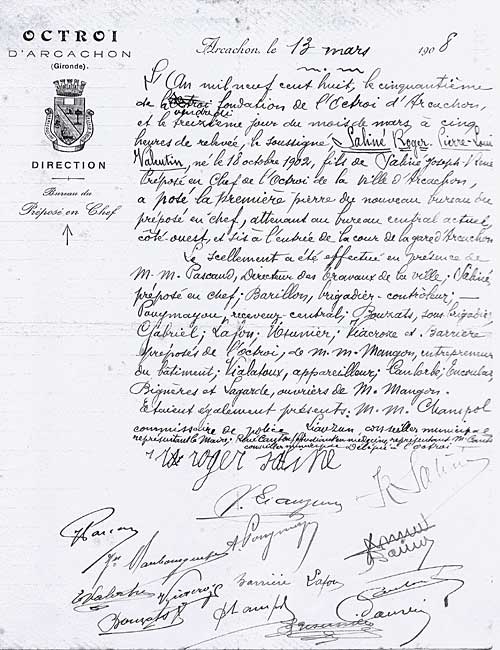 OCTROI
D'ARCACHON
(Gironde)
DIRECTION
Bureau du
Préposé en Chef
Arcachon, le 13 mars 1908
L'An mil neuf cent huit, le cinquantième
de la fondation de l'Octroi d'Arcachon,
vendredi
et le treizième jour du mois de mars, à cinq
heures de relevée, le soussigné, Saliné Roger, Pierre-Louis
Valentin, né le 18 octobre 1902, fils de Saliné Joseph
Préposé en Chef de l'Octroi de la ville d'Arcachon,
a posé la première pierre du nouveau bureau du
préposé en chef, attenant au bureau central actuel,
côté ouest, et sis à l'entrée de la cour de la gare d'Arcachon
Le scellement a été effectué en présence de
M. M. Pascaud, Directeur des travaux de la ville; Saliné,
préposé en chef; Barillon, brigadier-contrôleur; —
Pouymayou, receveur central; Bourzats, sous brigadier,
Gabriel; Lafon; Viacroze et Barrière
préposés de l'octroi, de M. M. Mangon, entrepreneur
du bâtiment; Vialatoux, appareilleur;
Bignères et Lagarde, ouvriers de M. Mangon.
Etaient également présents. M. M. Champol
commissaire de police, conseiller municipal
représentant le Maire;
conseiller municipal Délégué à l'octroi
roger saline
Barrière Lafon